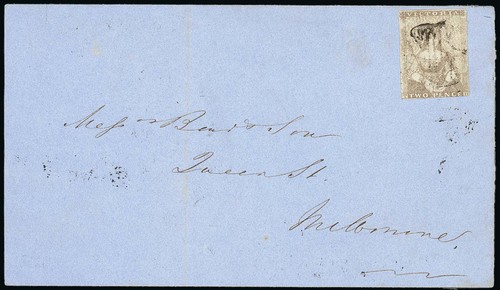 VICTORIA
TWO PENCE
Messrs & Son
Queen St.
Melbourne.